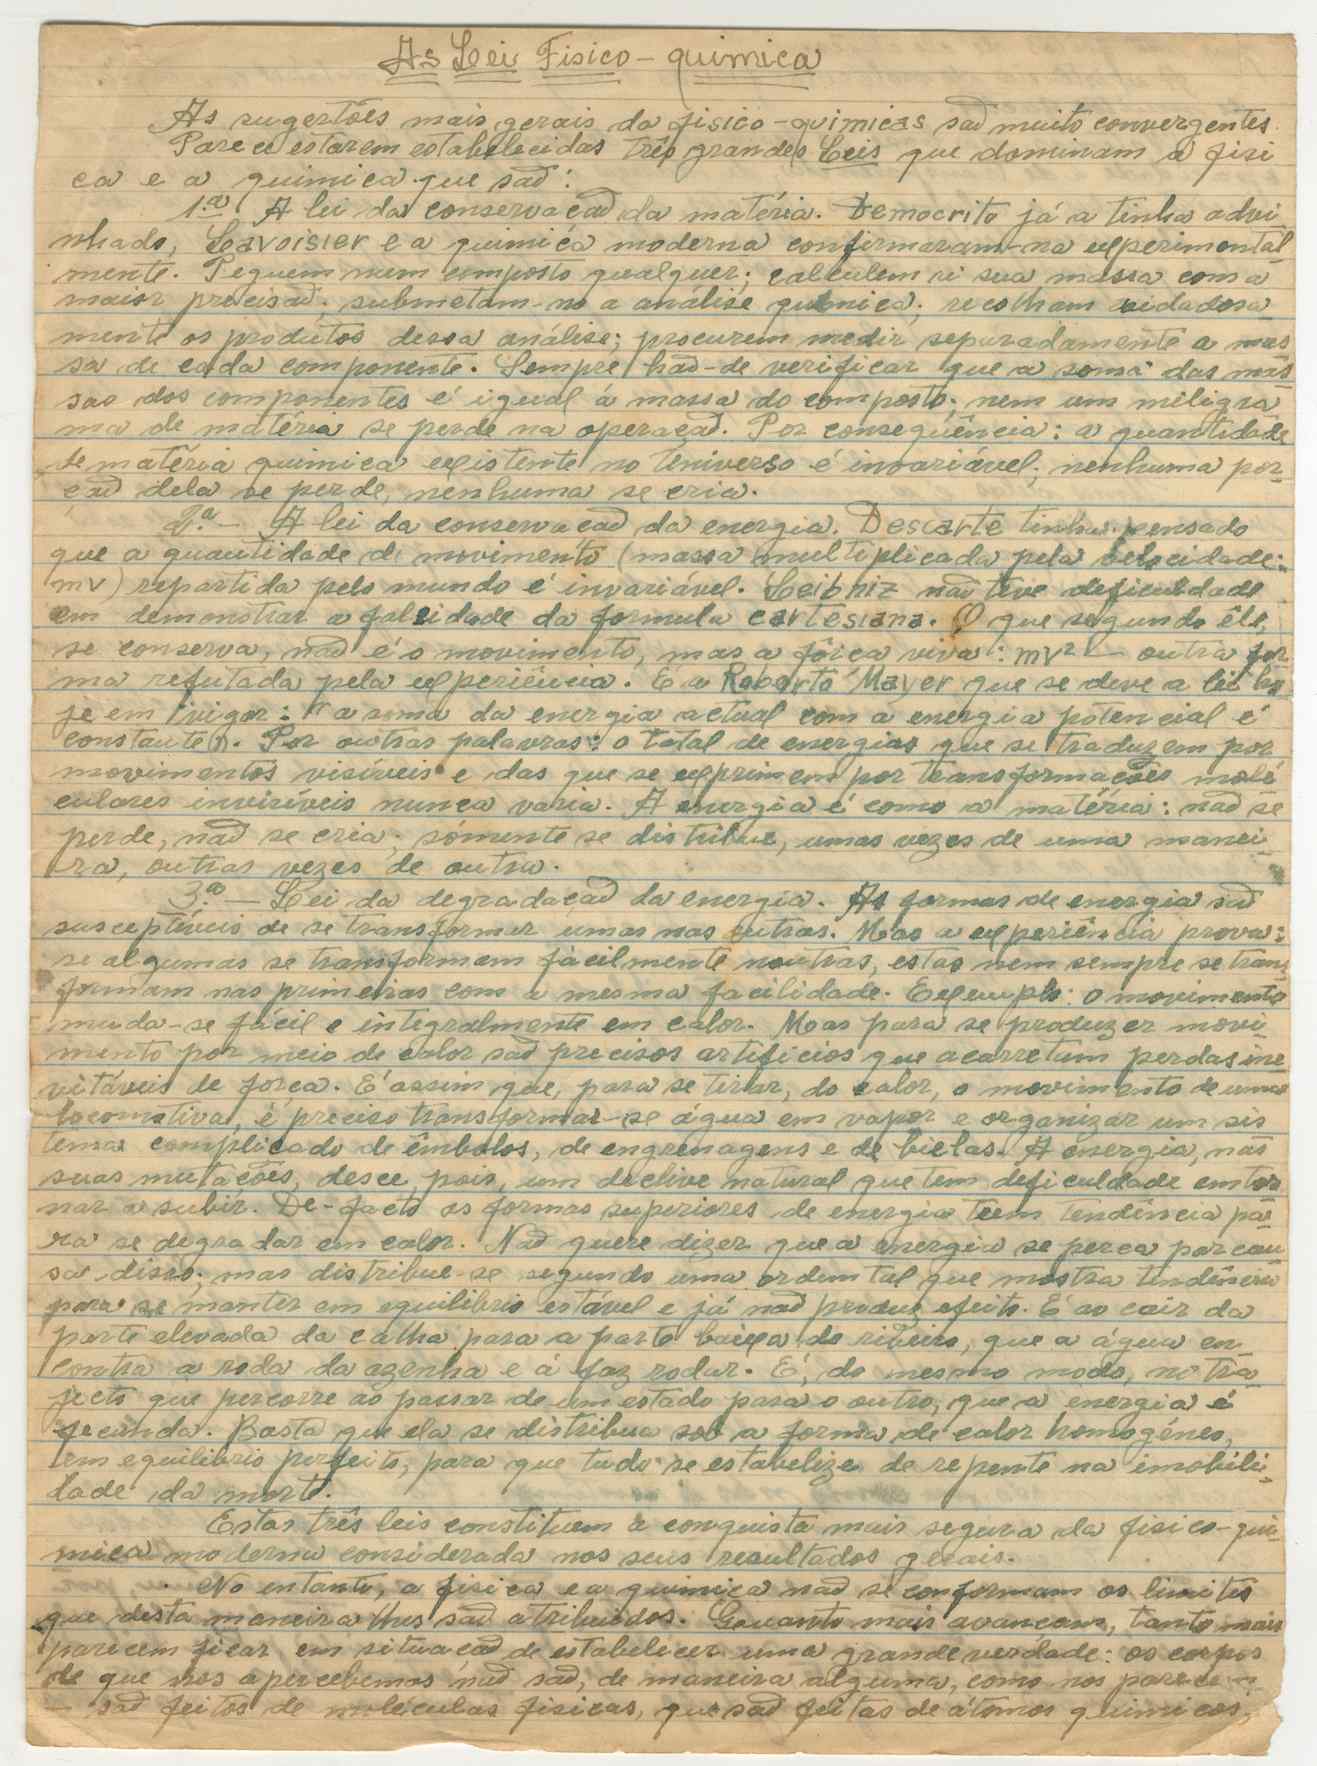 As Lei Fisico - quimica
As sugertões mais gerais da fisico-quimicas são muito convergentes.
Parece estarem estabelecidas três grandes Leis que dominam a fisi
ca e a quimica que são:
1.ª A lei da conservação da matéria. Democrito já a tinha advi
nhado, Lavoisier e a quimica moderna confirmaram-na experimental
mente. Peguem num composto qualquer; calculem a sua massa com a
maior precisão; submetam-no a análise quimica; recolham cuidadosa
mente os produtos dessa análise; procurem medir separadamente a mas
sa de cada componente. Sempre hão-de verificar que a soma das mas
sas dos componentes é igual á massa do composto; nem um miligra
ma de matéria se perde na operação. Por conseqüência: a quantidade
de matéria quimica existente no Universo é invariável; nenhuma por-
ção dela se perde, nenhuma se cria.
2.ª - A lei da conservação da energia. Descarte tinha pensado
que a quantidade de movimento (massa multiplicada pela velocidade:
mv) repartida pelo mundo é invariável. Leibniz não teve deficuldade
em demonstrar a falsidade da formula cartesiana. O que segundo êle,
se conserva, não é o movimento, mas a fôrça viva: mv² - outra fór
ma refutada pela experiência. E a Roberto Mayer que se deve a lei ho
je em vigor: "a soma da energia actual com a energia potencial é
constante". Por outras palavras: o total de energias que se traduzem por
movimentos visíveis e das que se exprimem por transformações molé
culares invisíveis nunca varia. A energia é como a matéria: não se
perde, não se cria; sómente se distribue, umas vezes de uma manei-
ra, outras vezes de outra.
3.ª - Lei da degradação da energia. As formas de energia são
susceptíveis de se transformar umas nas outras. Mas a experiência prova:
se algumas se transformam fácilmente noutras, estas nem sempre se trans
formam nas primeiras com a mesma facilidade. Exemplo: o movimento
muda-se fácil e integralmente em calor. Mas para se produzer movi
mento por meio de calor são precisos artificios que acarretam perdas ine
vitáveis de força. É assim que, para se tirar, do calor, o movimento de uma
locomotiva, é preciso transformar-se água em vapor e organizar um sis
tema complicado de êmbolos, de engrenagens e de bielas. A energia, nas
suas mutações, desce, pois, um declive natural que tem deficuldade em tor
nar a subir. De-facto as formas superiores de energia teem tendência pa
ra se degradar em calor. Não quere dizer que a energia se perca por cau
sa disso; mas distribue-se segundo uma ordem tal que mostra tendência
para se manter em equilibrio estável e já não produz efeito. É ao cair da
parte elevada da calha para a parte baixa do ribeiro, que a água en
contra a roda da azenha e á faz rodar. É, do mesmo modo, no tra
jecto que percorre ao passar de um estado para o outro, que a energia é
fecunda. Basta que ela se distribua sob a forma de calor homogéneo,
em equilibrio perfeito, para que tudo se estabelize de repente na imobili-
dade da morte.
Estas três leis constituem a conquista mais segura da fisico-qui
mica moderna considerada nos seus resultados gerais.
No entanto, a fisica e a quimica não se conformam os limites
que desta maneira lhes são atribuidos. Quanto mais avançam, tanto mais
parecem ficar em situação de estabelecer uma grande verdade: os corpos
de que nos apercebemos não são, de maneira alguma, como nos parecem
- são feitos de moléculas fisicas, que são feitas de átomos quimicos;